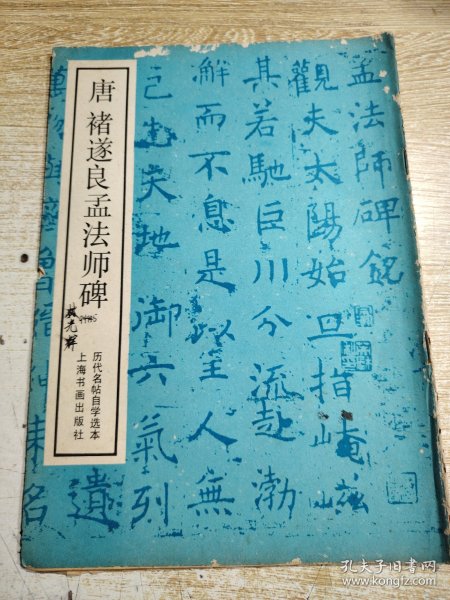 唐 褚遂良孟法师碑
历代名帖自学选本
上海书画出版社
孟法師碑銘
觀夫太陽始旦指崦嵫
其若馳巨川分流赴渤
解而不息是以至人無
己天地御六氣列
遺
名
孔夫子旧书网
www.kongfz.com